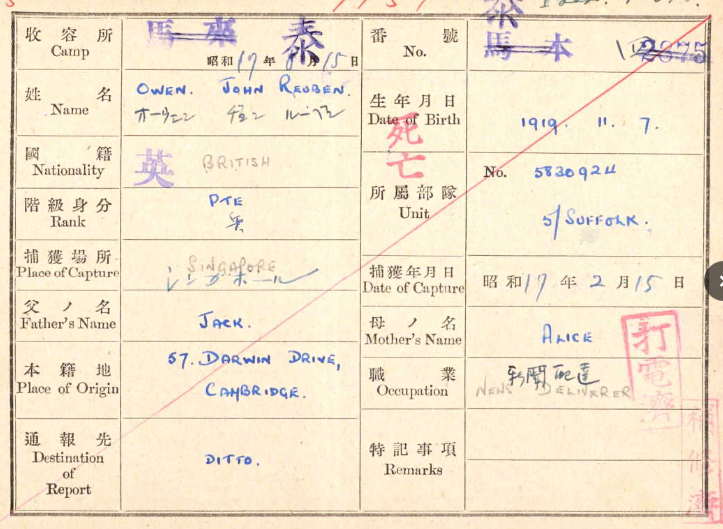 收容所
Camp
馬來
泰
昭和17年8月15日
番號
No.
泰
馬本
姓名
Name
OWEN. JOHN REUBEN.
オーウェン ヂョン ルーベン
生年月日
Date of Birth
1919. 11. 7.
死亡
國籍
Nationality
英
BRITISH
所屬部隊
Unit
No. 5830924
5/SUFFOLK.
階級身分
Rank
PTE
兵
捕獲場所
Place of Capture
SINGAPORE
シンガポール
捕獲年月日
Date of Capture
昭和17年2月15日
父ノ名
Father's Name
JACK.
母ノ名
Mother's Name
ALICE
本籍地
Place of Origin
57. DARWIN DRIVE,
CAMBRIDGE.
職業
Occupation
新聞配達
NEWS DELIVERER
打電濟
通報先
Destination
of
Report
DITTO.
特記事項
Remarks